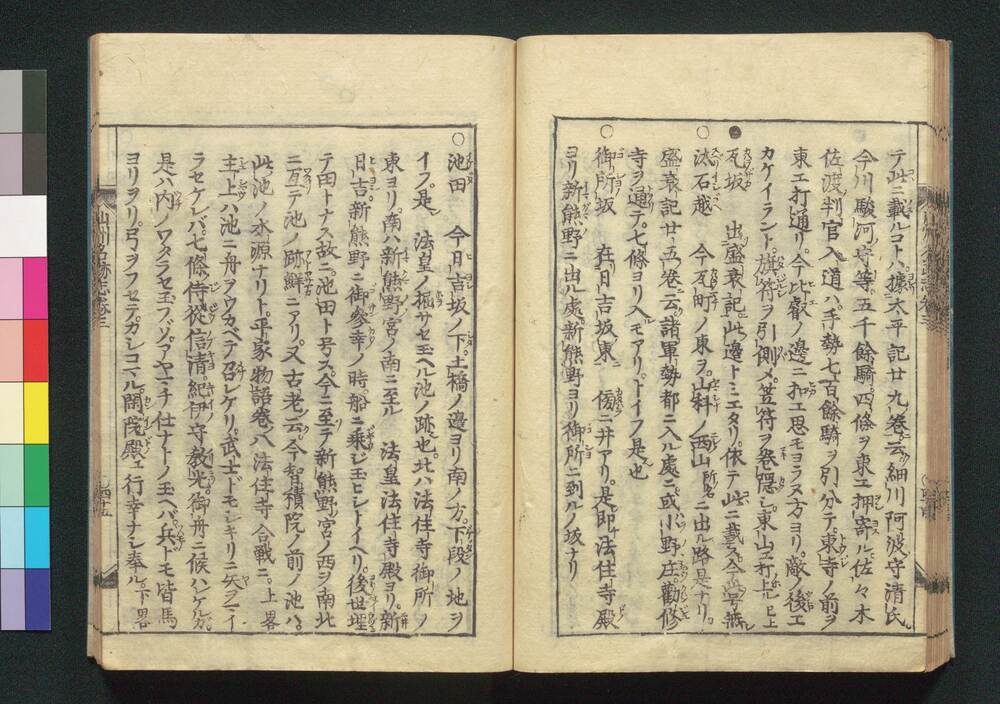 テ此ニ載ルコト、據太平記廿九卷ニ云細川阿波守清氏
今川駿河守等五千餘騎四條ヲ東エ押寄ル佐々木
佐渡判官入道ハ手勢七百餘騎ヲ引分テ東寺ノ前ヲ
東エ打通リ今比叡ノ邊ニ扣エ思モヨラヌ方ヨリ敵ノ後エ
カケイラント旗符ヲ引側メ笠符ヲ卷隱シ東山エ打上ル已上
瓦坂 出盛衰記此邊トミエタリ依テ此ニ載ス今号無
汰石越 今瓦町ノ東ヲ山科ノ西山所名ニ出ル路是ナリ
盛衰記廿五卷云諸軍勢都ニ入ル處ニ或小野庄勸修
寺ヲ通テ七條ヨリ入モアリトイフ是也
御所坂 在日吉坂東 傍ニ井アリ是即法住寺殿
ヨリ新熊野ニ出ル處新熊野ヨリ御所ニ到ルノ坂ナリ
池田 今日吉坂ノ下土橋ノ邊ヨリ南ノ方下段ノ地ヲ
イフ是 法皇ノ掘サセ玉ヘル池ノ跡也北ハ法住寺御所ノ
東ヨリ南ハ新熊野宮ノ南ニ至ル 法皇法住寺殿ヨリ新
日吉新熊野ニ御參幸ノ時船ニ乗シ玉ヒシトイヘリ後世埋
テ田トナス故ニ池田ト号ス今ニ至テ新熊野宮ノ西ヲ南北
ニ亙テ池ノ跡鮮ニアリ又古老云今智積院ノ前ノ池ハ
此池ノ水源ナリト平家物語卷八法住寺合戰ニ上畧
主上ハ池ニ舟ヲウカベテ召レケリ武士ドモシキリニ矢ヲマイ
ラセケレバ七條侍從信清紀伊守教光御舟ニ候ハレケルガ
是ハ内ノワタラセ玉フゾアヤマチ仕ナトノ玉ヘバ兵ドモ皆馬
ヨリヲリ弓ヲフセテカシコマル閑院殿エ行幸ナシ奉ル下畧
山州名跡志卷三
四十五